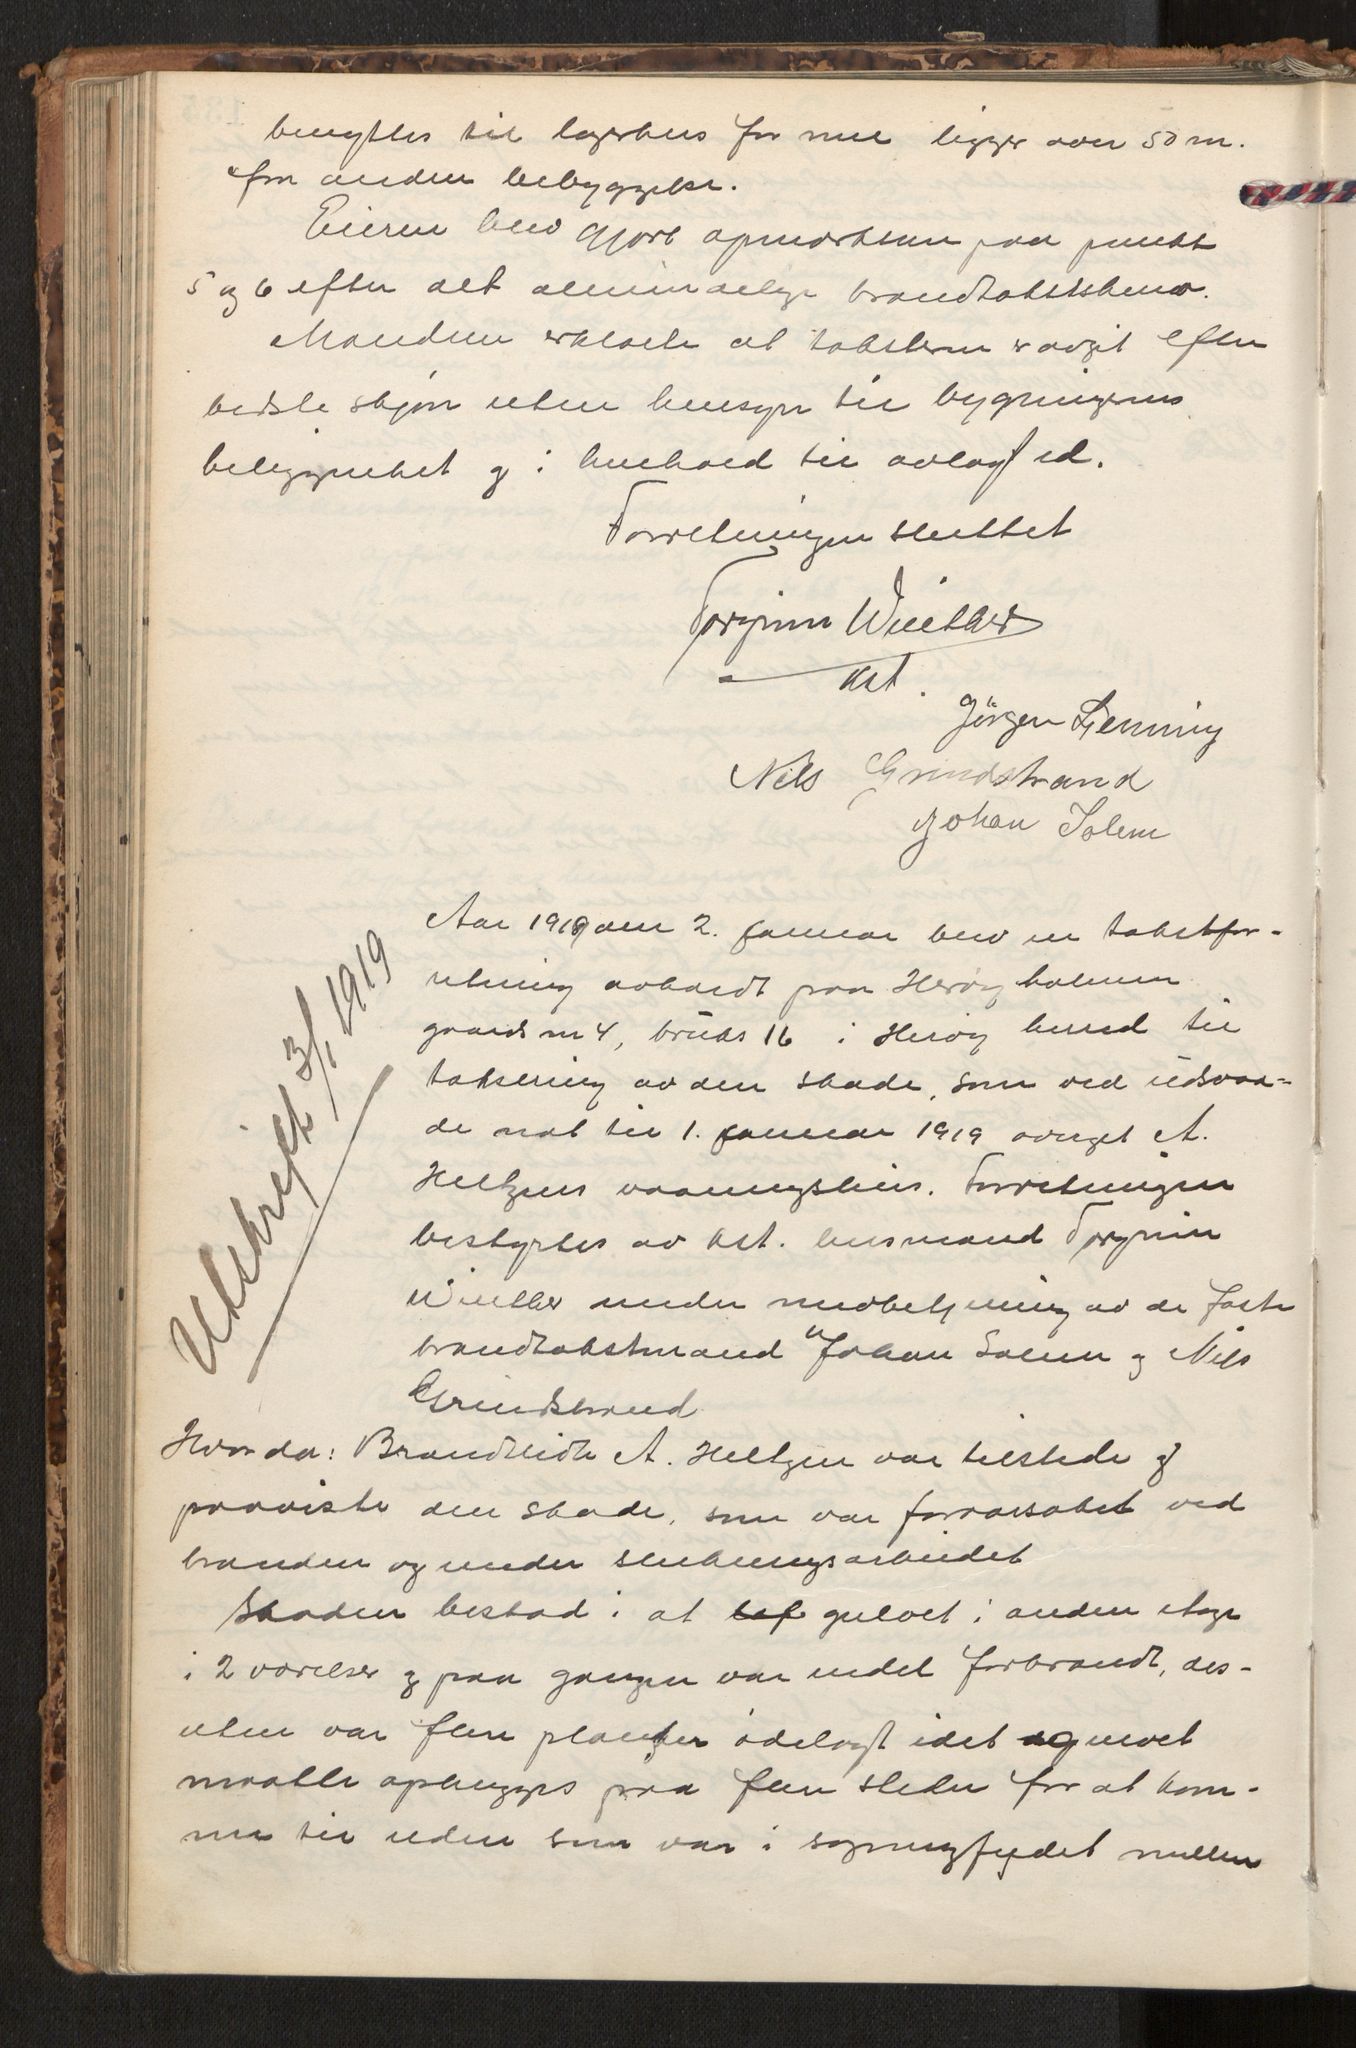 benyttes til lagerhus for mel ligger over 50 m.
fra anden bebyggelse.
Eieren blev gjort opmerksom paa punkt
5 og 6 efter det almindelige brandtakstskema.
Mændene erklærte at taksterne er avgit efter
bedste skjøn uten hensyn til bygningernes
beliggenhet og i henhold til avlagt ed.
Forretningen sluttet
Torfinn Winther
kst.
Jörgen Lenning
Nils Grindstrand
Johan Solem
Utskrift 3/1 1919
Aar 1919 den 2. januar blev en takstfor-
retning avholdt paa Herøyholmen
gaards nr 4, bruks 16 i Herøy herred til
taksering av den skade, som ved ildsvaa-
de nat til 1. januar 1919 overgik A.
Heltzens vaaningshus. Forretningen
bestyrtes av kst. lensmand Torfinn
Winther under medbetjening av de faste
brandtakstmænd Johan Solem og Nils
Grindstrand
Hvorda: Brandlidte A. Heltzen var tilstede og
paaviste den skade, som var foraarsaket ved
branden og under slukningsarbeidet
Skaden bestod i at gulvet i anden etage
i 2 værelser og paa gangen var endel forbrændt, des-
uten var flere planker ødelagt idet gulvet
maatte ophugges paa flere steder for at kom-
me til ilden som var i sagmugfyldet mellem